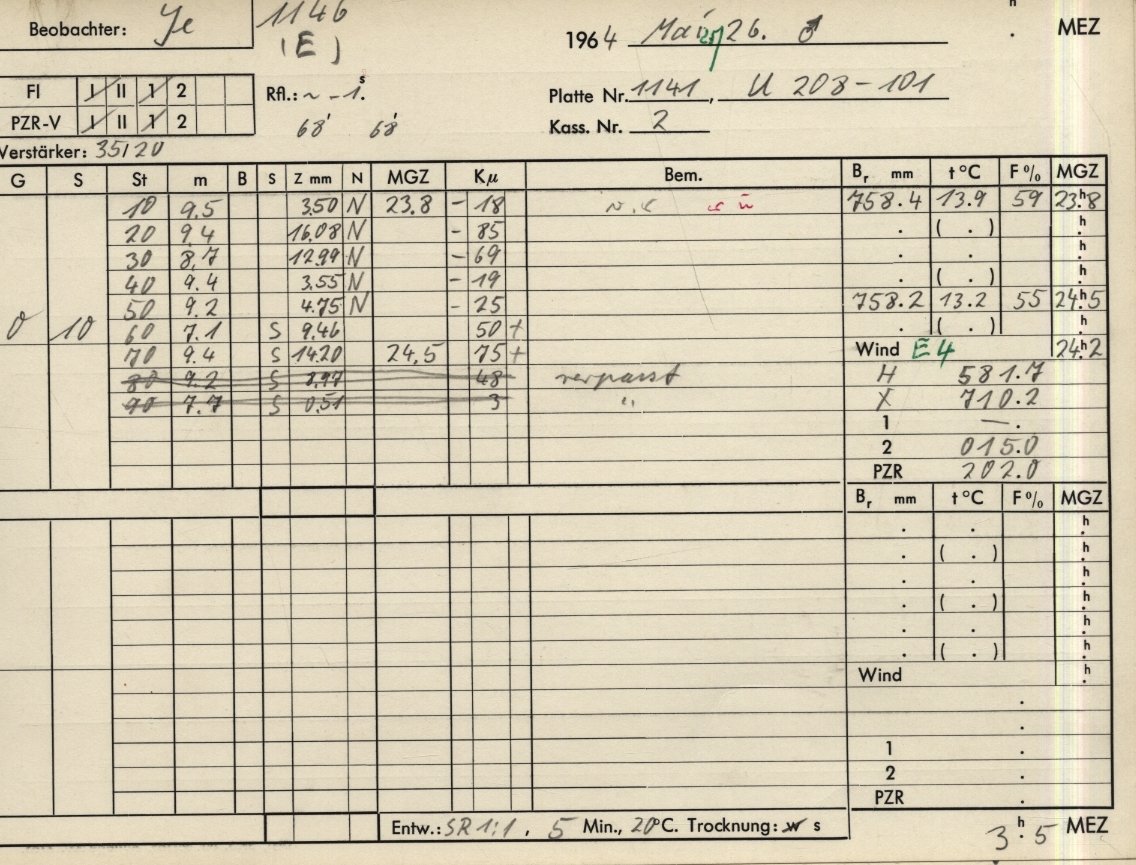 Beobachter: Je 1146 h
(E) 1964 Mai 25/26. ♂ . MEZ
FI I II 1 2 Rfl.: ~ -1.s Platte Nr. 1141, U 208-101
PZR-V I II 1 2 68' 68' Kass. Nr. 2
Verstärker: 35/20
G S St m B S Z mm N MGZ Kμ Bem. Br mm t °C F % MGZ
10 9.5 3.50 N 23.8 - 18 758.4 13.9 59 23h.8
20 9.4 16.08 N - 85 . ( . ) h.
30 8.7 12.99 N - 69 . . h.
40 9.4 3.55 N - 19 . ( . ) h.
50 9.2 4.75 N - 25 758.2 13.2 55 24h.5
0 10 60 7.1 S 9.46 50 + . ( . ) h.
70 9.4 S 14.20 24.5 75 + Wind E4 24h.2
80 9.2 S 8.97 48 verpasst H 581.7
90 7.7 S 0.51 3 " X 710.2
1 — .
2 015.0
PZR 202.0
Br mm t °C F % MGZ
. . h.
. ( . ) h.
. . h.
. ( . ) h.
. . h.
. ( . ) h.
Wind h.
.
.
1 .
2 .
PZR .
Entw.: SR 1:1, 5 Min., 20°C. Trocknung: w s 3h.5 MEZ